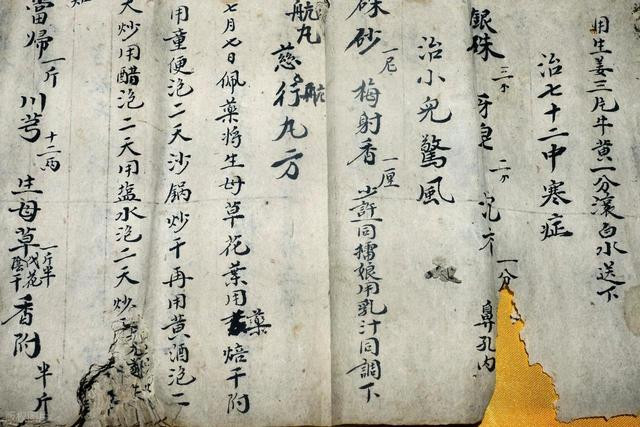 用生姜三片牛黄一分滚白水送下
治七十二中寒症
银硃 三分 牙皂 二分 一分 鼻孔内
治小兒驚風
硃砂 一厘 梅射香 一厘 少許同孺娘用乳汁同調下
航丸 航
慈行丸方
七月七日佩藥將生母草花葉用藥焙干附
用童便泡二天沙锅炒干再用黄酒泡二
天炒用醋泡二天用盐水泡二天炒
當帰 一斤 川芎 十二两 生母草 一斤半 陰干 香附 半斤